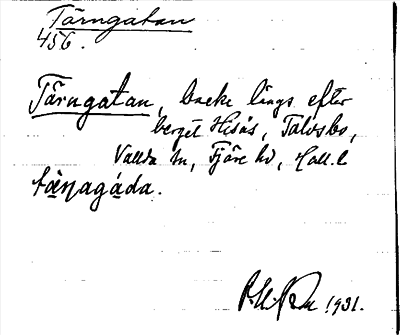 Tärngatan
456.
Tärngatan, backe längs efter
berget Hisås, Talvsbo,
Vallda sn, Fjäre hd, Hall. l
1931.